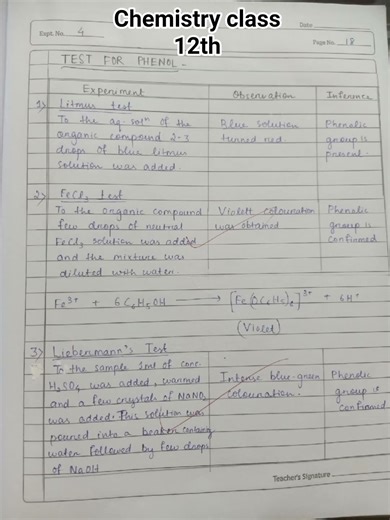 Chemistry class
12th
Expt. No. 4
Date
Page No. 18
TEST FOR PHENOL -
Experiment Observation Inference
1) Litmus test
To the aq. solⁿ of the Blue solution Phenolic
organic compound 2-3 turned red. group is
drops of blue litmus present.
solution was added.
2) FeCl₃ test
To the organic compound Violet colouration Phenolic
few drops of neutral was obtained group is
FeCl₃ solution was added confirmed
and the mixture was
diluted with water.
Fe³⁺ + 6C₆H₅OH → [Fe(OC₆H₅)₆]³⁺ + 6H⁺
(Violet)
3) Liebermann's Test
To the sample 1ml of conc.
H₂SO₄ was added, warmed Intense blue-green Phenolic
and a few crystals of NaNO₂ colouration. group is
was added. This solution was confirmed
poured into a beaker containing
water followed by few drops
of NaOH
Teacher's Signature